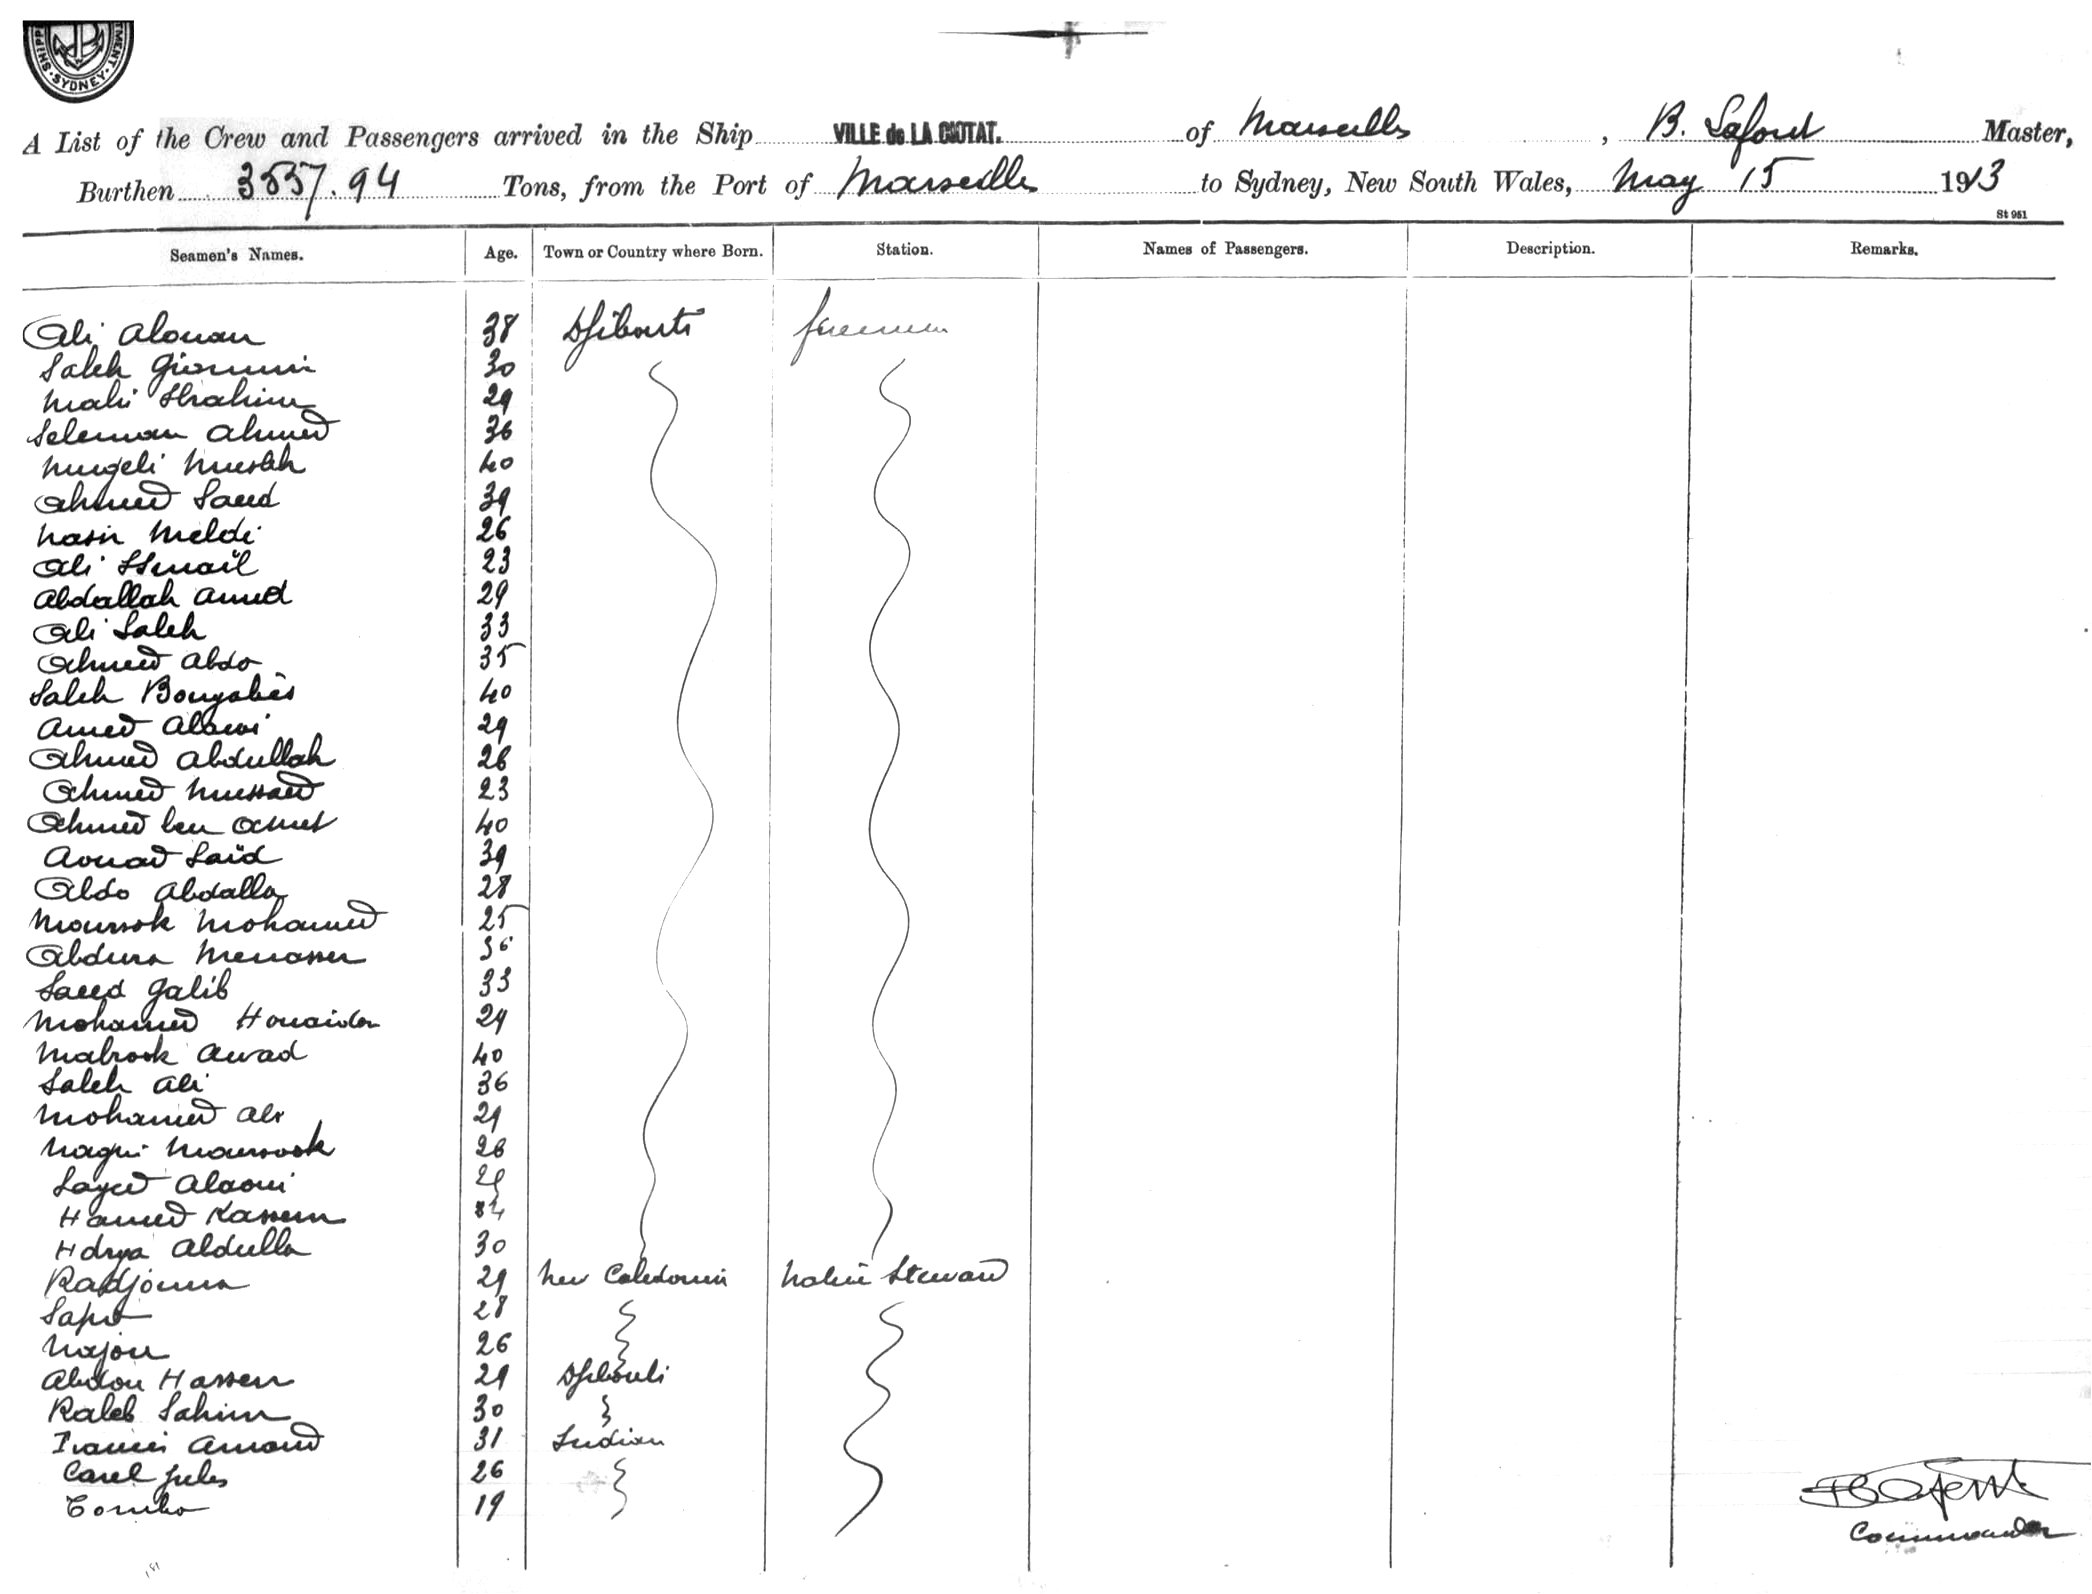 SHIPP MENT. SYDNEY
A List of the Crew and Passengers arrived in the Ship VILLE de LA CIOTAT. of Marseilles, B. Lafont Master,
Burthen 3557.94 Tons, from the Port of Marseilles to Sydney, New South Wales, May 15 1913
St 951
Seamen's Names. Age. Town or Country where Born. Station. Names of Passengers. Description. Remarks.
Ali Alouan 38 Djibouti firemen
Saleh 30
Mahi Ibrahim 29
Seleman Ahmed 36
Mugeli Musleh 40
Ahmed Saed 39
Nasir Meldi 26
Ali Ismaïl 23
Abdallah Amed 29
Ali Saleh 33
Ahmed Abdo 35
Saleh 40
Amed Alawi 29
Ahmed Abdullah 26
Ahmed Mussaed 23
Ahmed ben Achmet 40
Aouad Saïd 39
Abdo Abdalla 28
Moursok Mohamed 25
Menasser 36
Saeed Galib 33
Mohamed Houaidar 29
Mabrook Awad 40
Saleh Ali 36
Mohamed Ali 29
Nagui Moursook 26
Sayed Alaoui
Hamed Kassem
Abdulla 30
Radjouma 29 New Caledonia Native Steward
Sapo 28
Najou 26
Abdou Hassen 29 Djibouti
Kaleb Sahim 30
Francis Amand 31 Indian
Carel Jules 26
Combo 19
Commander